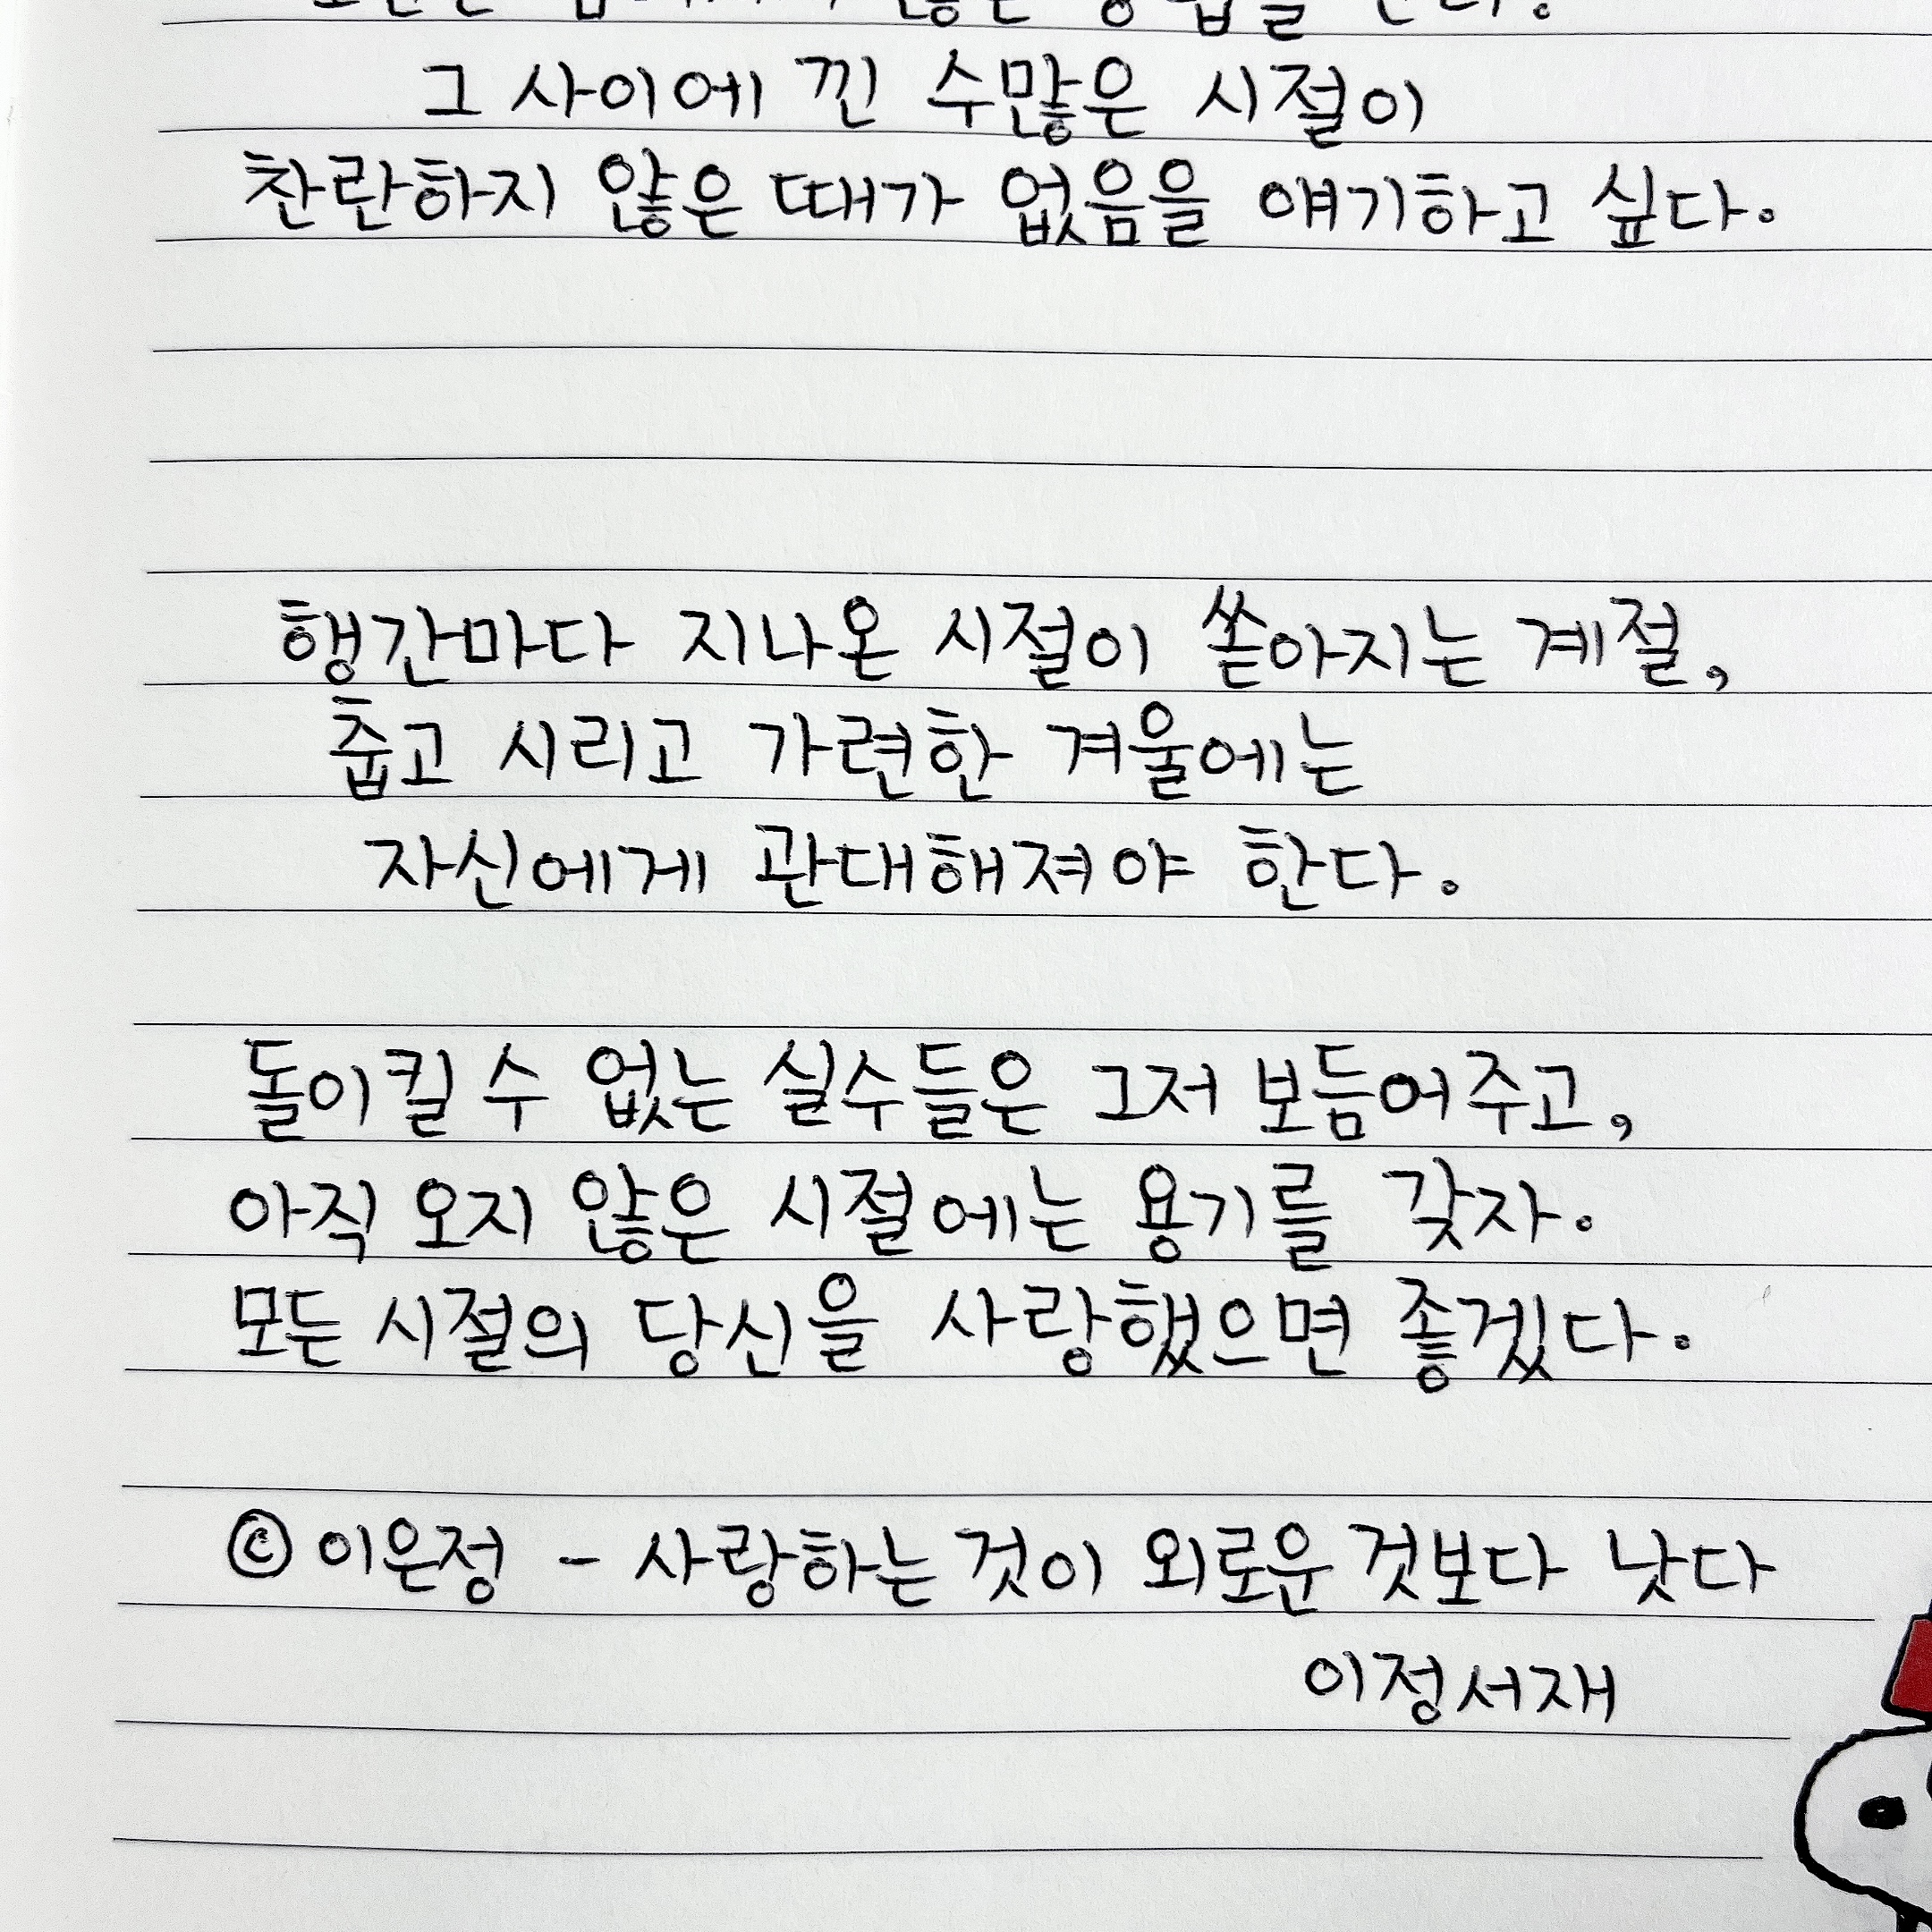 그 사이에 낀 수많은 시절이
찬란하지 않은 때가 없음을 얘기하고 싶다.
행간마다 지나온 시절이 쏟아지는 계절,
춥고 시리고 가련한 겨울에는
자신에게 관대해져야 한다.
돌이킬 수 없는 실수들은 그저 보듬어주고,
아직 오지 않은 시절에는 용기를 갖자.
모든 시절의 당신을 사랑했으면 좋겠다.
© 이은정 - 사랑하는 것이 외로운 것보다 낫다
이정서재